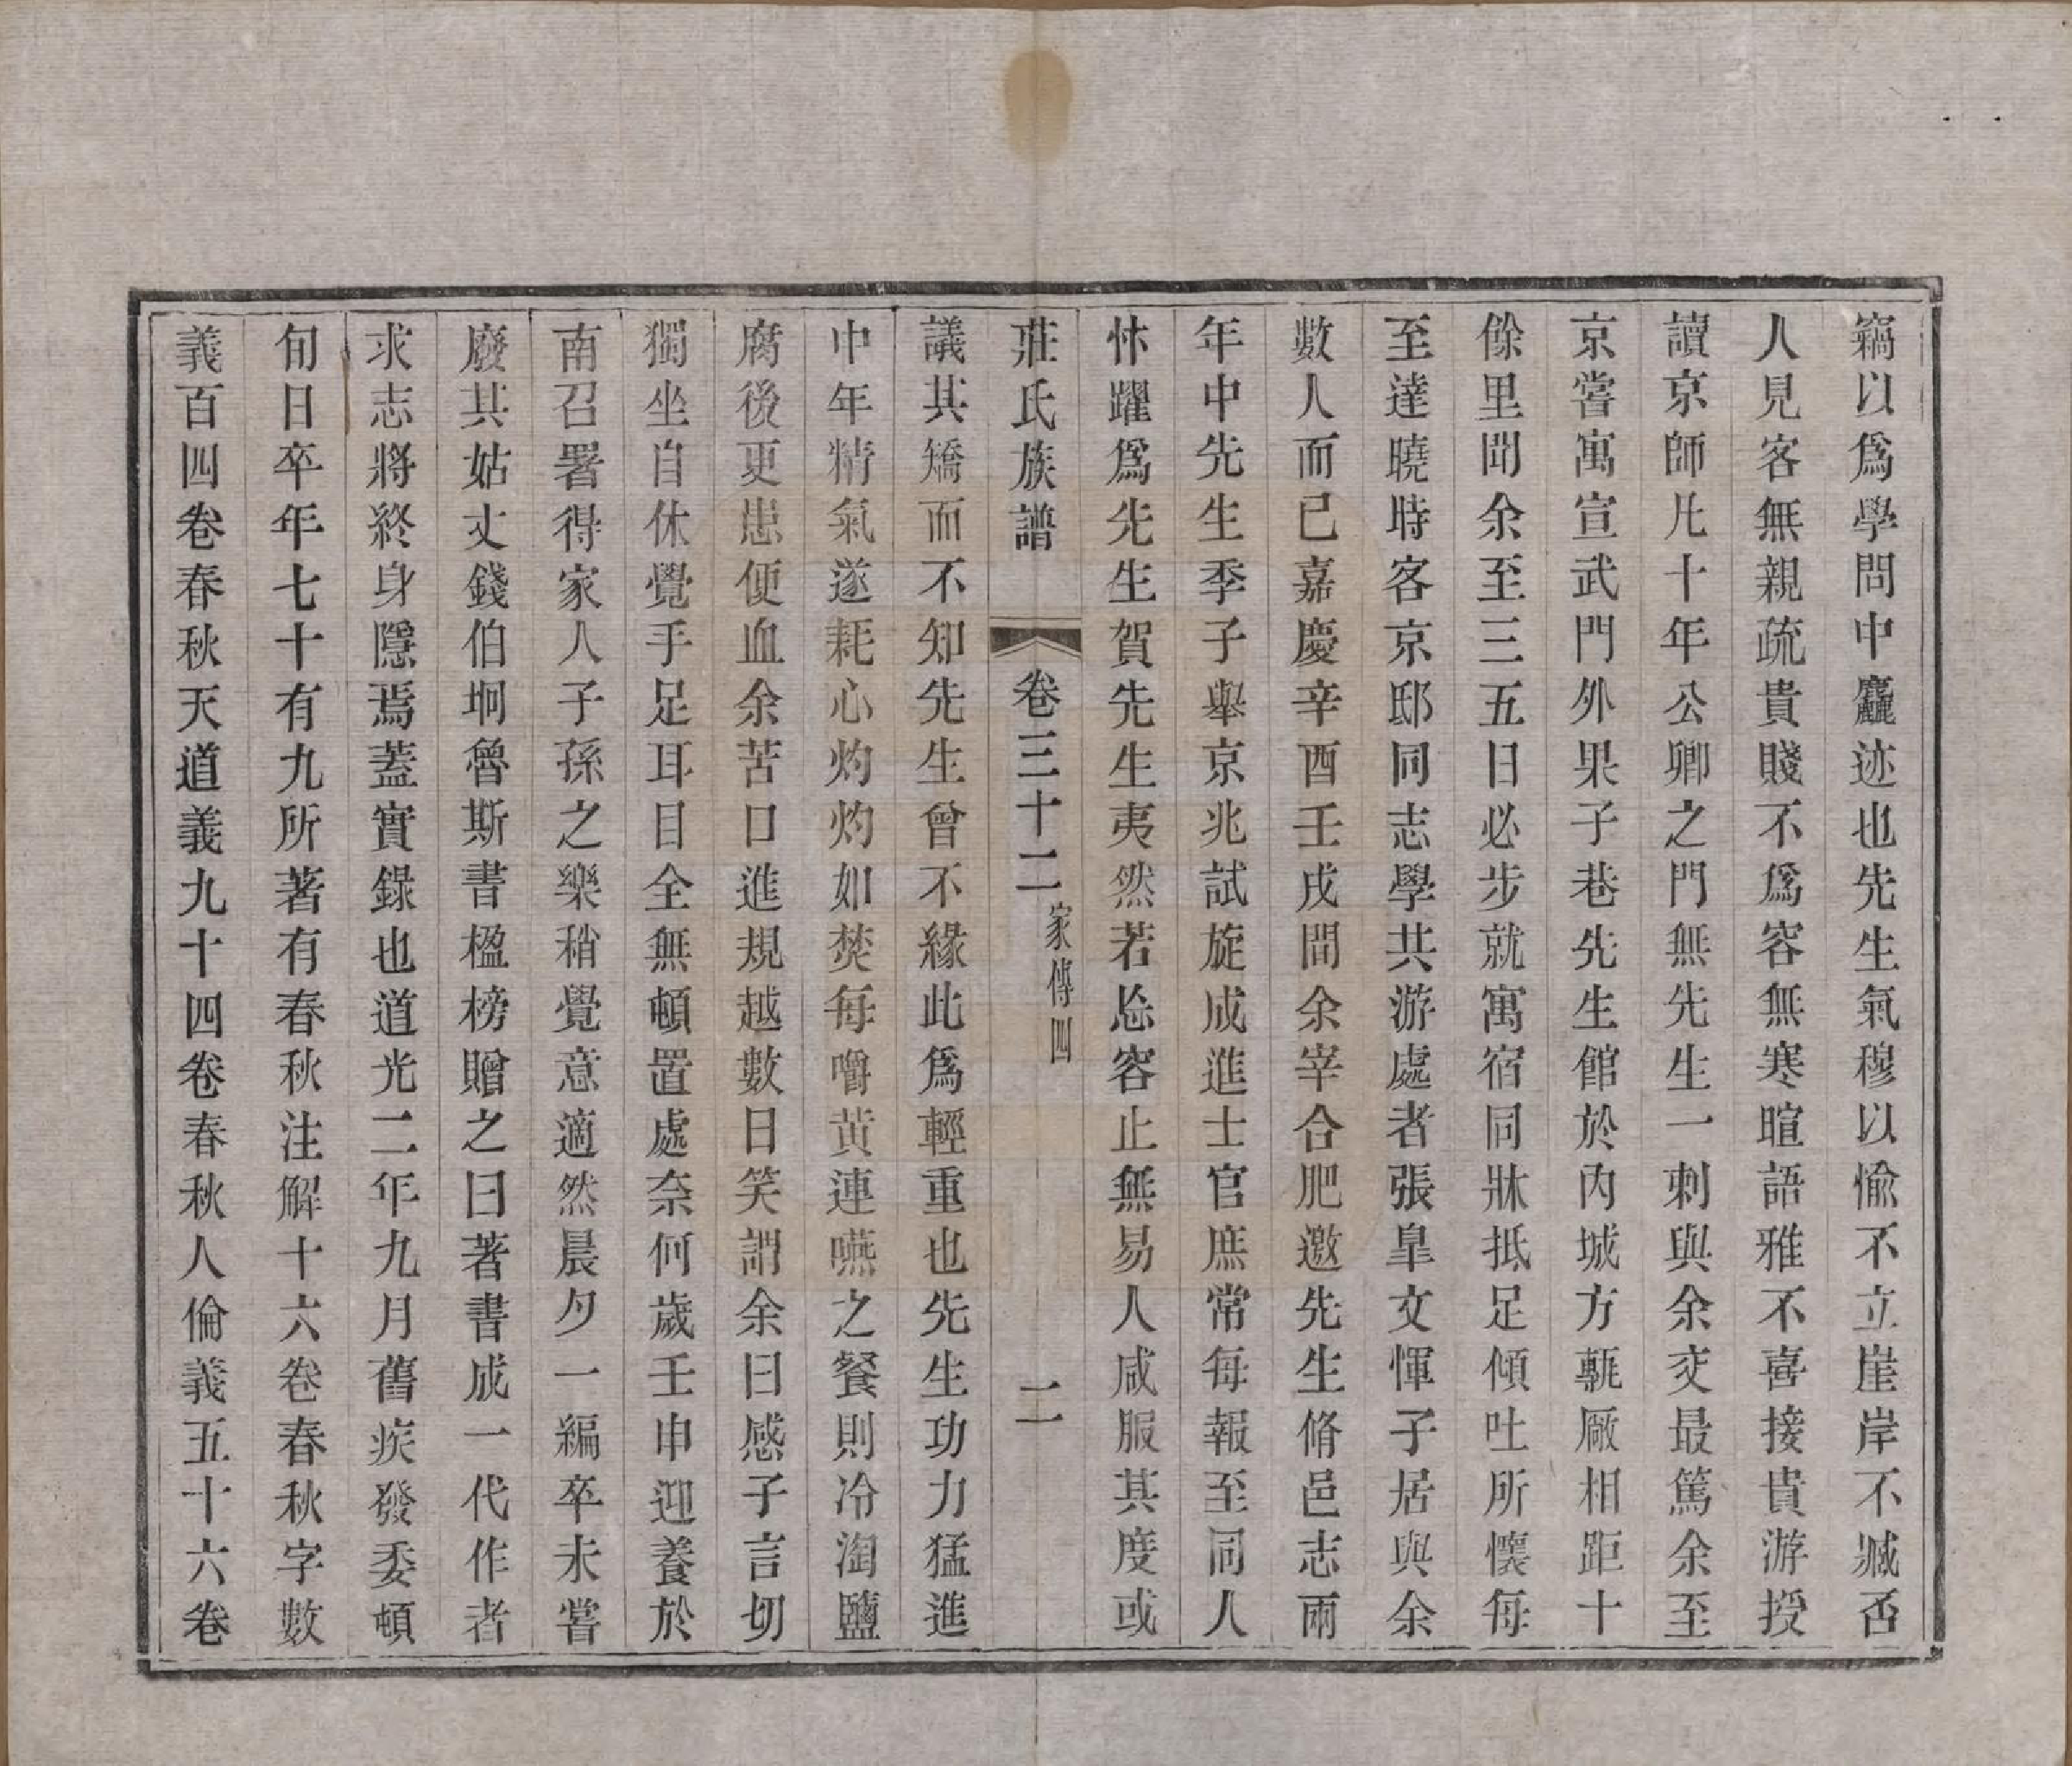 竊以爲學問中麤迹也先生氣穆以愉不立崖岸不臧否
人見客無親疏貴賤不爲容無寒暄語雅不喜接貴游授
讀京師凡十年公卿之門無先生一刺與余交最篤余至
京嘗寓宣武門外果子巷先生館於內城方甎厰相距十
餘里聞余至三五日必步就寓宿同牀抵足傾吐所懷每
至達曉時客京邸同志學共游處者張皐文惲子居與余
數人而已嘉慶辛酉壬戌間余宰合肥邀先生脩邑志兩
年中先生季子舉京兆試旋成進士官庶常每報至同人
忭躍爲先生賀先生夷然若忘容止無易人咸服其度或
莊氏族譜 卷三十二 家傳四 二
議其矯而不知先生曾不緣此爲輕重也先生功力猛進
中年精氣遂耗心灼灼如焚每嚼黃連嚥之餐則冷淘鹽
腐後更患便血余苦口進規越數日笑謂余曰感子言切
獨坐自休覺手足耳目全無頓置處奈何歲壬申迎養於
南召署得家人子孫之樂稍覺意適然晨夕一編卒未嘗
廢其姑丈錢伯坰魯斯書楹榜贈之曰著書成一代作者
求志將終身隱焉蓋實錄也道光二年九月舊疾發委頓
旬日卒年七十有九所著有春秋注解十六卷春秋字數
義百四卷春秋天道義九十四卷春秋人倫義五十六卷